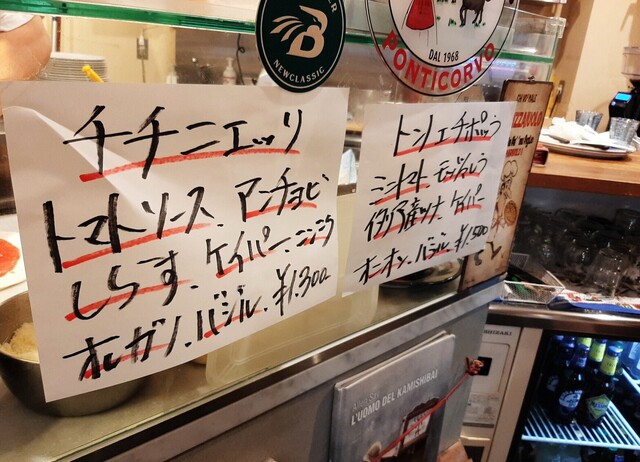 NEWCLASSIC
DAL 1968
PONTICORVO
チチニエッリ
トマトソース、アンチョビ
しらす、ケイパー、ニンニク
オレガノ、バジル、¥1.300
トンノエチポッラ
ミニトマト モッツァレラ
イタリア産ツナ、ケイパー
オニオン、バジル、¥1.500
L'UOMO DEL KAMISHIBAI